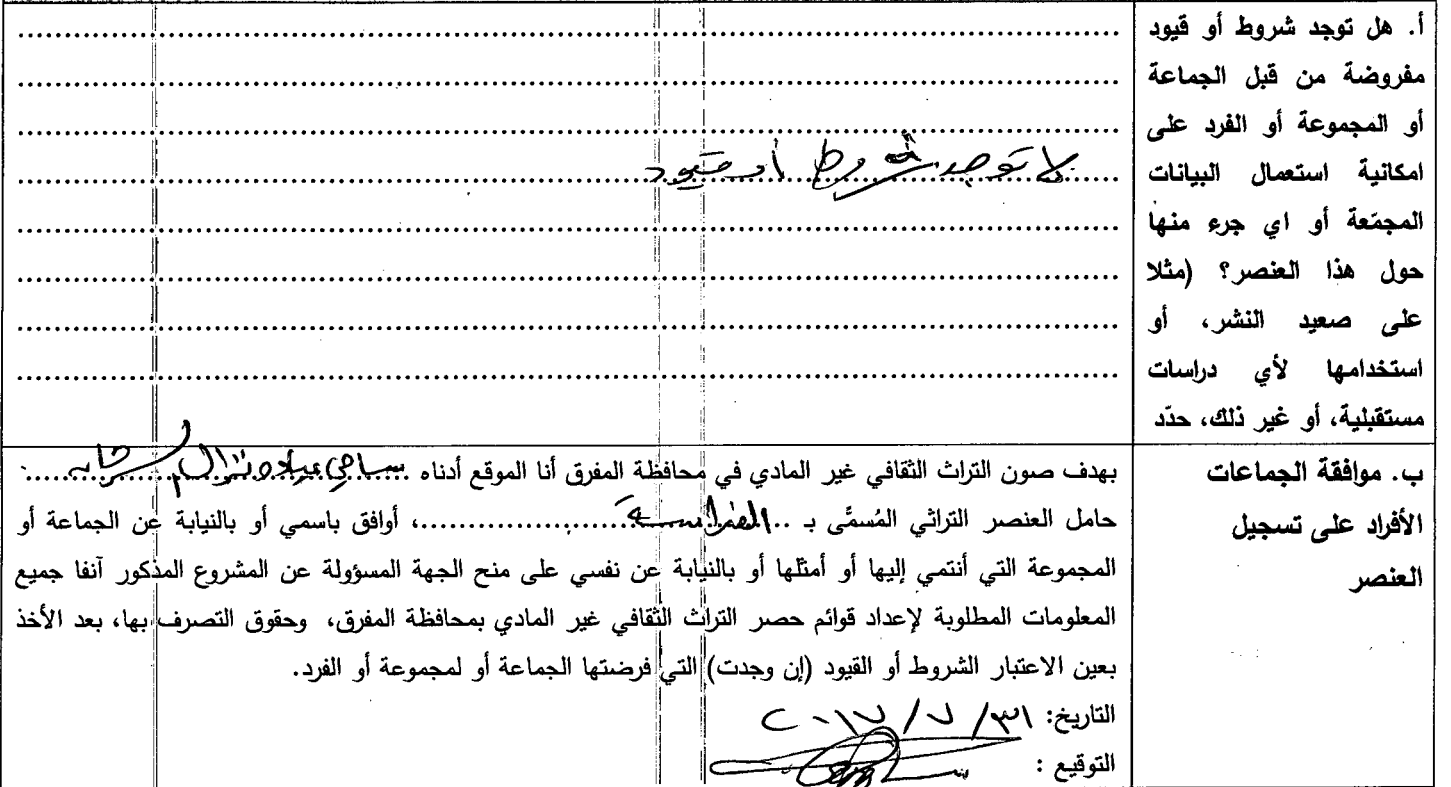 أ. هل توجد شروط أو قيود
مفروضة من قبل الجماعة
أو المجموعة أو الفرد على
امكانية استعمال البيانات
المجمّعة أو اي جرء منها
حول هذا العنصر؟ (مثلا
على صعيد النشر، أو
استخدامها لأي دراسات
مستقبلية، أو غير ذلك، حدّد
لا توجد شروط أو قيود
ب. موافقة الجماعات
الأفراد على تسجيل
العنصر
بهدف صون التراث الثقافي غير المادي في محافظة المفرق أنا الموقع أدناه
حامل العنصر التراثي المُسمَّى بـ ..........، أوافق باسمي أو بالنيابة عن الجماعة أو
المجموعة التي أنتمي إليها أو أمثلها أو بالنيابة عن نفسي على منح الجهة المسؤولة عن المشروع المذكور آنفا جميع
المعلومات المطلوبة لإعداد قوائم حصر التراث الثقافي غير المادي بمحافظة المفرق، وحقوق التصرف بها، بعد الأخذ
بعين الاعتبار الشروط أو القيود (إن وجدت) التي فرضتها الجماعة أو لمجموعة أو الفرد.
التاريخ: ٣١/ ٧/ ٢٠١٧
التوقيع :